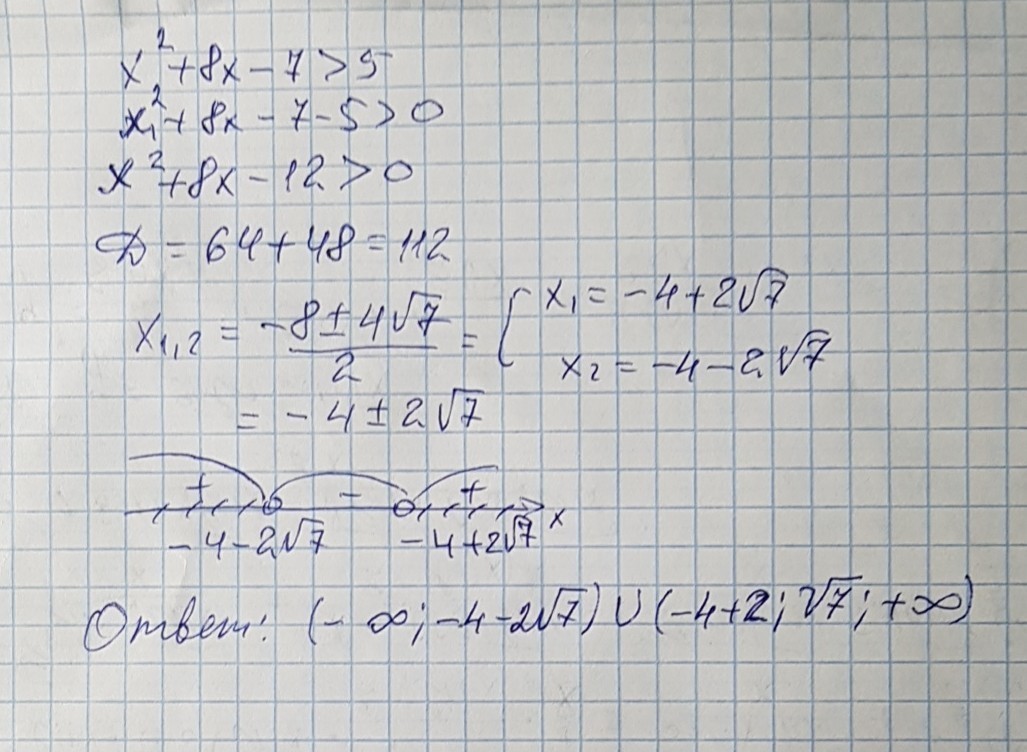 x² + 8x − 7 > 5
x₁² + 8x − 7 − 5 > 0
x² + 8x − 12 > 0
D = 64 + 48 = 112
x₁,₂ = (−8 ± 4√7)/2 = { x₁ = −4 + 2√7
x₂ = −4 − 2√7
= −4 ± 2√7
+ − + x
−4−2√7 −4+2√7
Ответ: (−∞; −4−2√7) ∪ (−4+2; √7; +∞)